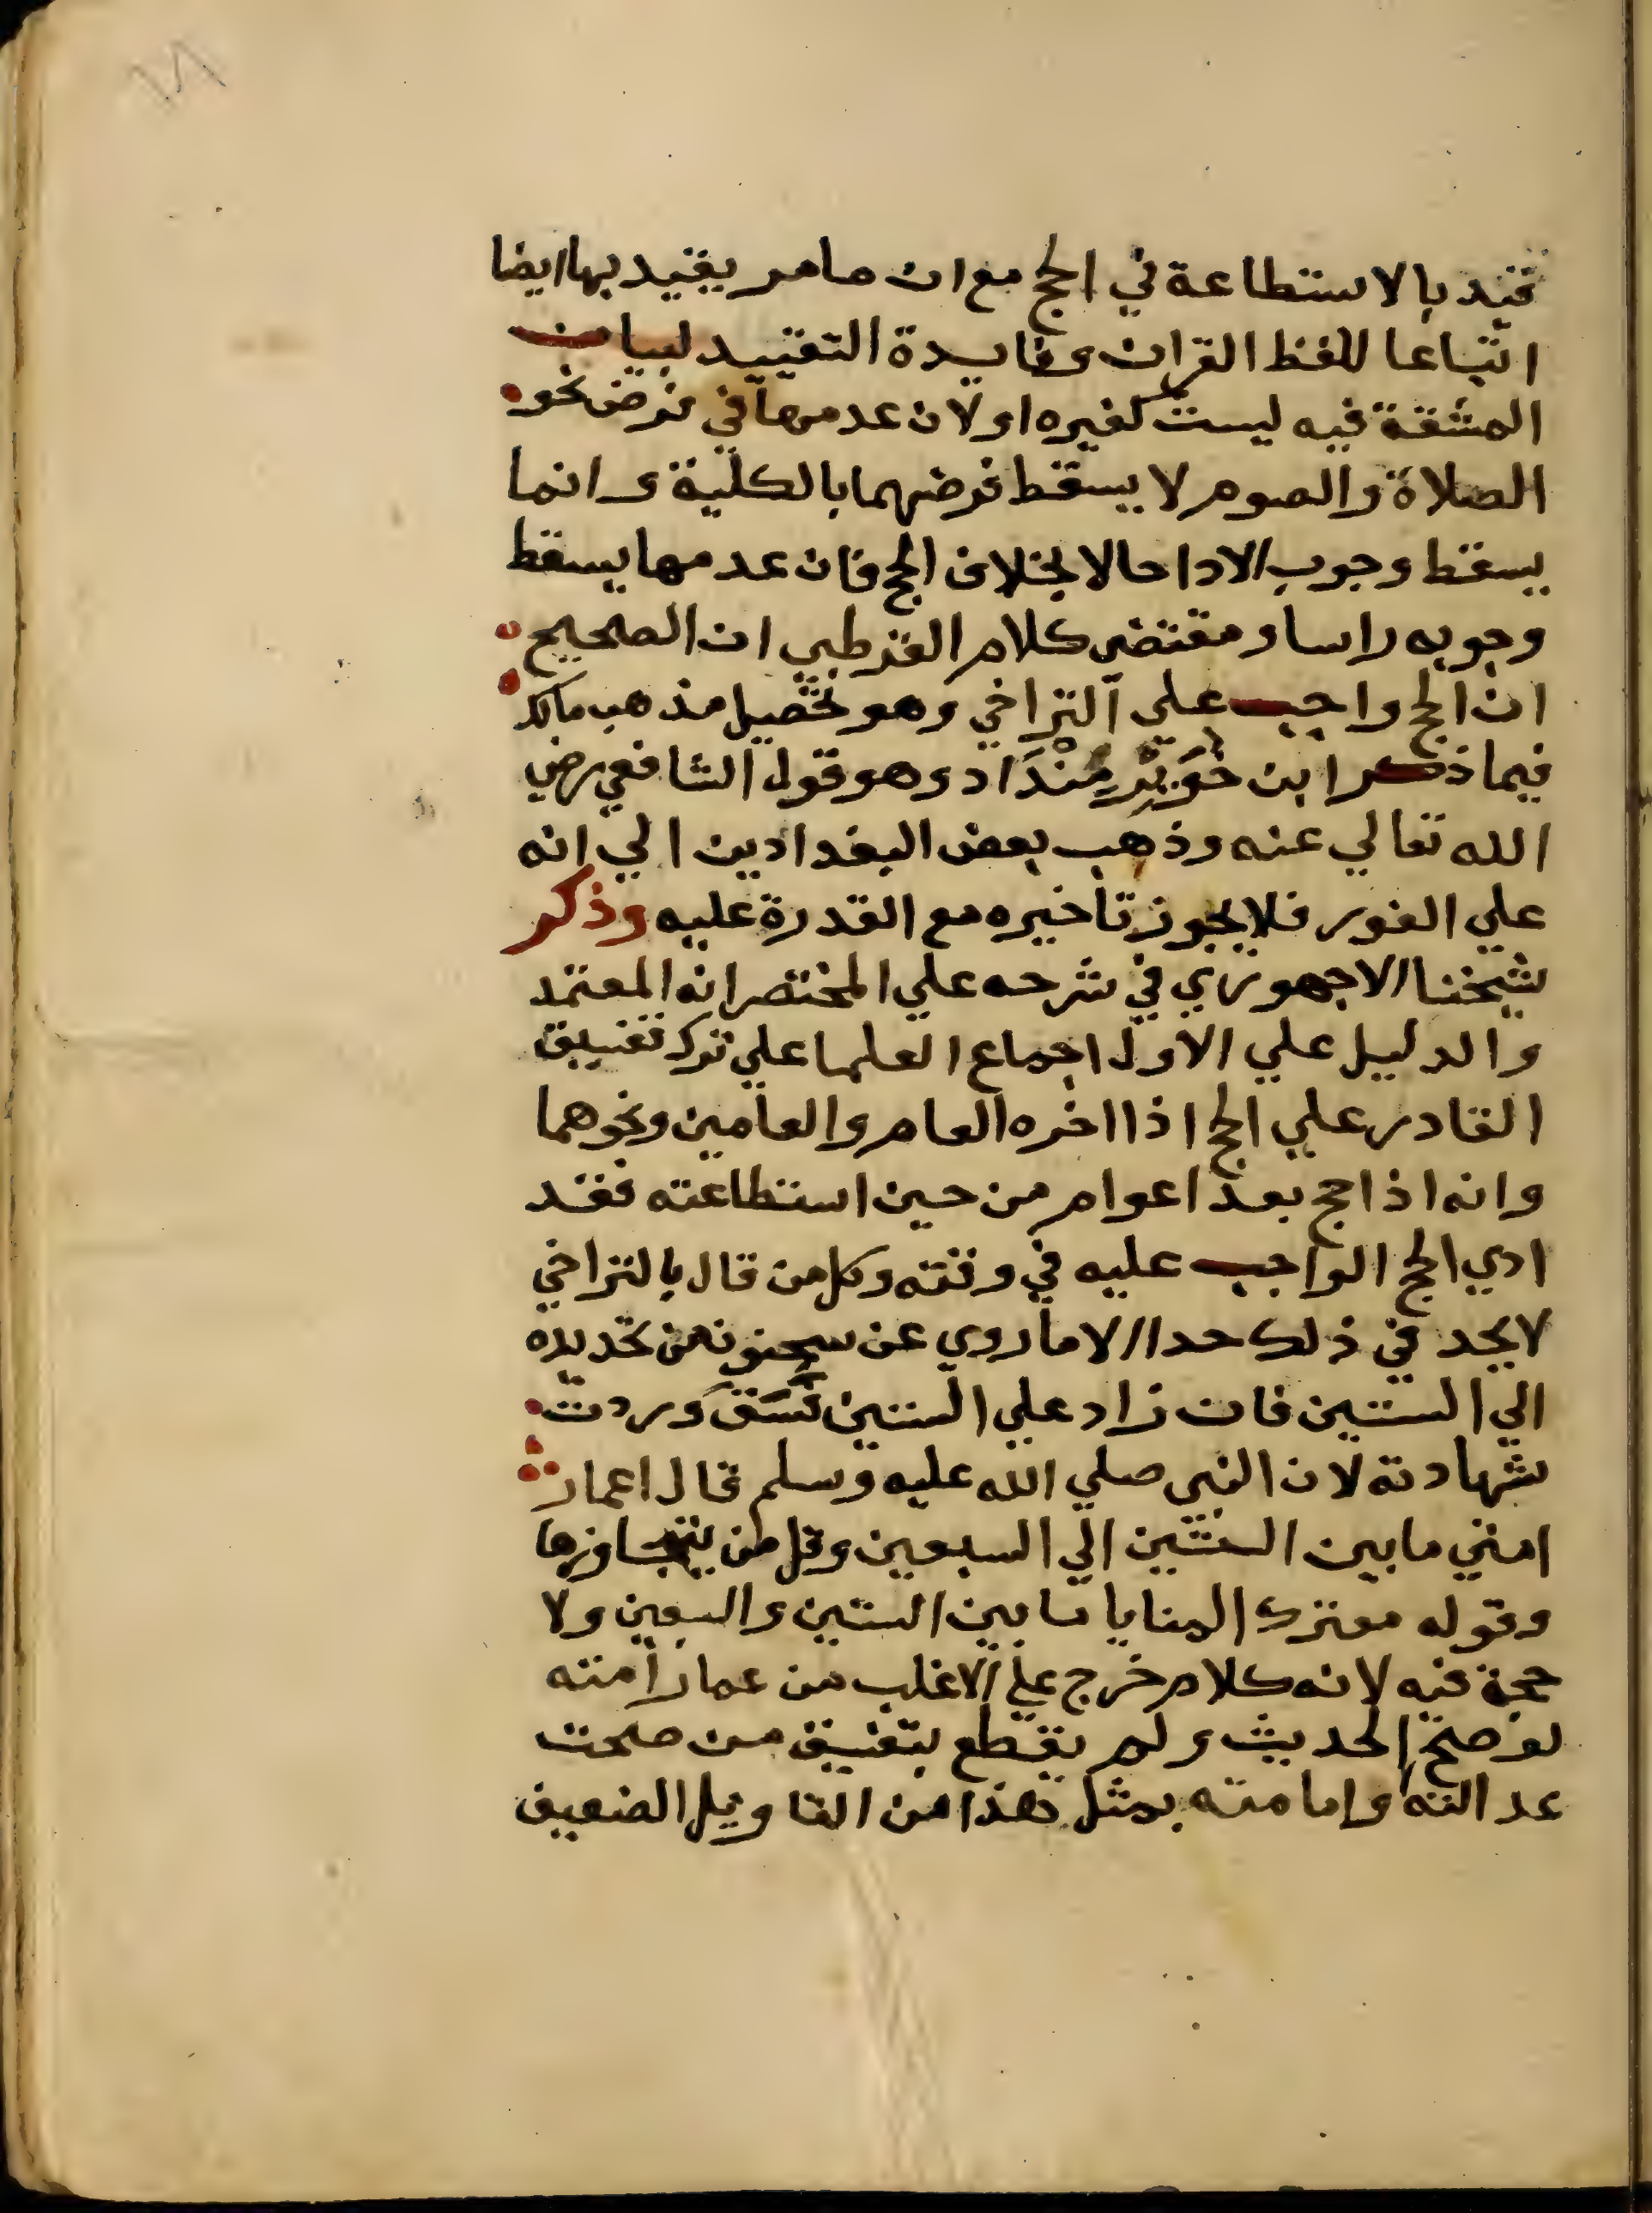 قيد بالاستطاعة في الحج مع ان ما مر يقيد بها ايضا
اتباعا للفظ القران وفايدة التقييد لبيان
المشقة فيه ليست كغيره او لان عدمها في فرض نحو
الصلاة والصوم لا يسقط فرضهما بالكلية وانما
يسقط وجوب الادا حالا بخلاف الحج فان عدمها يسقط
وجوبه راسا ومقتضى كلام القرطبي ان الصحيح
ان الحج واجب علي التراخي وهو تحصيل مذهب مالك
فيما ذكر ابن خُوَيْزِ مِنْدَاد وهو قول الشافعي رضي
الله تعالي عنه وذهب بعض البغداديين الي انه
علي الفور فلا يجوز تاخيره مع القدرة عليه وذكر
شيخنا الاجهوري في شرحه علي المختصر انه المعتمد
والدليل علي الاول اجماع العلما علي ترك تفسيق
القادر علي الحج اذا اخره العام والعامين ونحوهما
وانه اذا حج بعد اعوام من حين استطاعته فقد
ادي الحج الواجب عليه في وقته وكل من قال بالتراخي
لا يحد في ذلك حدا الا ما روي عن سحنون من تحديده
الي الستين فان زاد علي الستين فَسَقَ وردت
شهادته لان النبي صلي الله عليه وسلم قال اعمار
امتي ما بين الستين الي السبعين وقل من يتجاوزها
وقوله معترك المنايا ما بين الستين والسبعين ولا
حجة فيه لانه كلام خرج علي الاغلب من عمار امته
لو صح الحديث ولم يقطع بتفسيق من صحت
عدالته وامامته بمثل هذا من التاويل الضعيف